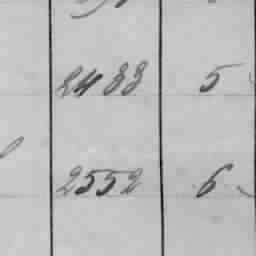 2433 5
2552 6